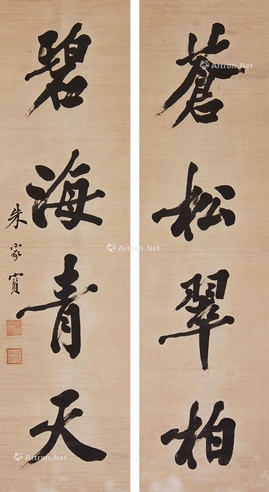 蒼松翠柏
碧海青天
朱家寶
Artron.Net
Artron.Net
Artron.Net
Artron.Net
Artron.Net
Artron.Net